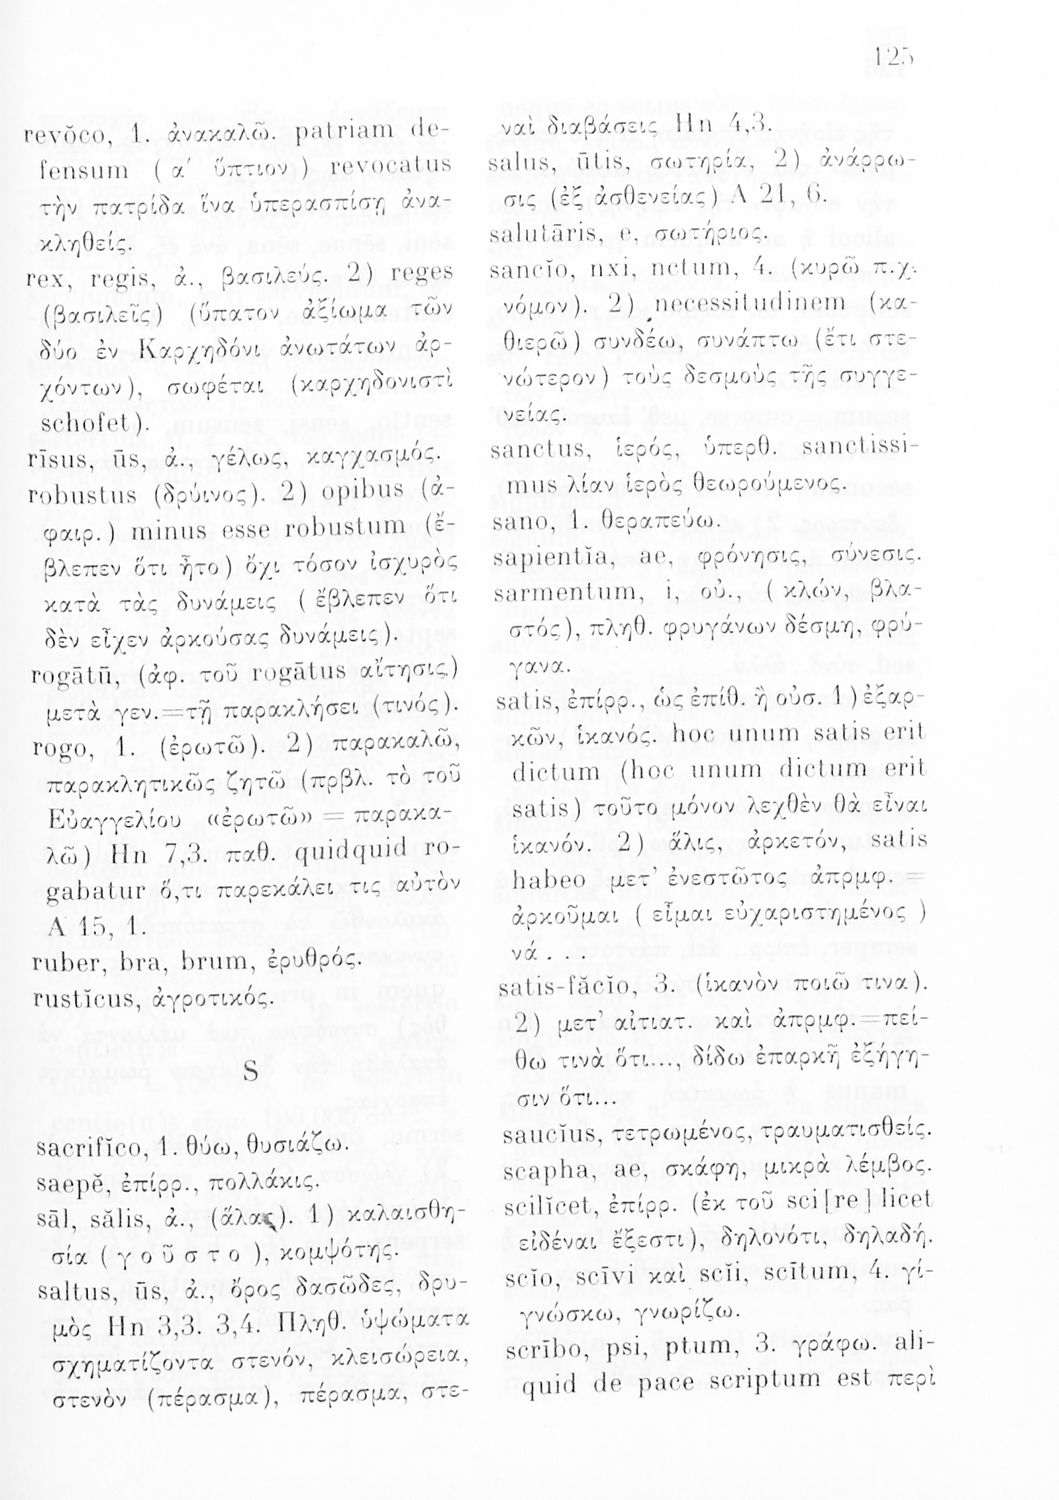 125
revŏco, 1. ἀνακαλῶ. patriam de-
fensum ( α΄ ὕπτιον ) revocatus
τὴν πατρίδα ἵνα ὑπερασπίσῃ ἀνα-
κληθείς.
rex, regis, ἀ., βασιλεύς. 2) reges
(βασιλεῖς) (ὕπατον ἀξίωμα τῶν
δύο ἐν Καρχηδόνι ἀνωτάτων ἀρ-
χόντων), σωφέται (καρχηδονιστὶ
schofet).
rīsus, ūs, ἀ., γέλως, καγχασμός.
robustus (δρύινος). 2) opibus (ἀ-
φαιρ.) minus esse robustum (ἔ-
βλεπεν ὅτι ἦτο) ὄχι τόσον ἰσχυρὸς
κατὰ τὰς δυνάμεις ( ἔβλεπεν ὅτι
δὲν εἶχεν ἀρκούσας δυνάμεις).
rogātū, (ἀφ. τοῦ rogātus αἴτησις)
μετὰ γεν.=τῇ παρακλήσει (τινός).
rogo, 1. (ἐρωτῶ). 2) παρακαλῶ,
παρακλητικῶς ζητῶ (πρβλ. τὸ τοῦ
Εὐαγγελίου «ἐρωτῶ» = παρακα-
λῶ) Hn 7,3. παθ. quidquid ro-
gabatur ὅ,τι παρεκάλει τις αὐτὸν
A 15, 1.
ruber, bra, brum, ἐρυθρός.
rustĭcus, ἀγροτικός.
S
sacrifĭco, 1. θύω, θυσιάζω.
saepĕ, ἐπίρρ., πολλάκις.
sāl, sălis, ἀ., (ἅλας). 1) καλαισθη-
σία ( γ ο ῦ σ τ ο ), κομψότης.
saltus, ūs, ἀ., ὄρος δασῶδες, δρυ-
μὸς Hn 3,3. 3,4. Πληθ. ὑψώματα
σχηματίζοντα στενόν, κλεισώρεια,
στενὸν (πέρασμα), πέρασμα, στε-
ναὶ διαβάσεις Hn 4,3.
salus, ūtis, σωτηρία, 2) ἀνάρρω-
σις (ἐξ ἀσθενείας) A 21, 6.
salutāris, e, σωτήριος.
sancĭo, nxi, nctum, 4. (κυρῶ π.χ.
νόμον). 2) necessitudinem (κα-
θιερῶ) συνδέω, συνάπτω (ἔτι στε-
νώτερον) τοὺς δεσμοὺς τῆς συγγε-
νείας.
sanctus, ἱερός, ὑπερθ. sanctissi-
mus λίαν ἱερὸς θεωρούμενος.
sano, 1. θεραπεύω.
sapientĭa, ae, φρόνησις, σύνεσις.
sarmentum, i, οὐ., ( κλών, βλα-
στός), πληθ. φρυγάνων δέσμη, φρύ-
γανα.
satis, ἐπίρρ., ὡς ἐπίθ. ἢ οὐσ. 1) ἐξαρ-
κῶν, ἱκανός. hoc unum satis erit
dictum (hoc unum dictum erit
satis) τοῦτο μόνον λεχθὲν θὰ εἶναι
ἱκανόν. 2) ἅλις, ἀρκετόν, satis
habeo μετ᾽ ἐνεστῶτος ἀπρμφ. =
ἀρκοῦμαι ( εἶμαι εὐχαριστημένος )
νά . . .
satis-făcĭo, 3. (ἱκανὸν ποιῶ τινα).
2) μετ᾽ αἰτιατ. καὶ ἀπρμφ.=πεί-
θω τινὰ ὅτι..., δίδω ἐπαρκῆ ἐξήγη-
σιν ὅτι...
saucĭus, τετρωμένος, τραυματισθείς.
scapha, ae, σκάφη, μικρὰ λέμβος.
scilĭcet, ἐπίρρ. (ἐκ τοῦ sci[re] licet
εἰδέναι ἔξεστι), δηλονότι, δηλαδή.
scĭo, scīvi καὶ scĭi, scītum, 4. γί-
γνώσκω, γνωρίζω.
scrībo, psi, ptum, 3. γράφω. ali-
quid de pace scriptum est περὶ